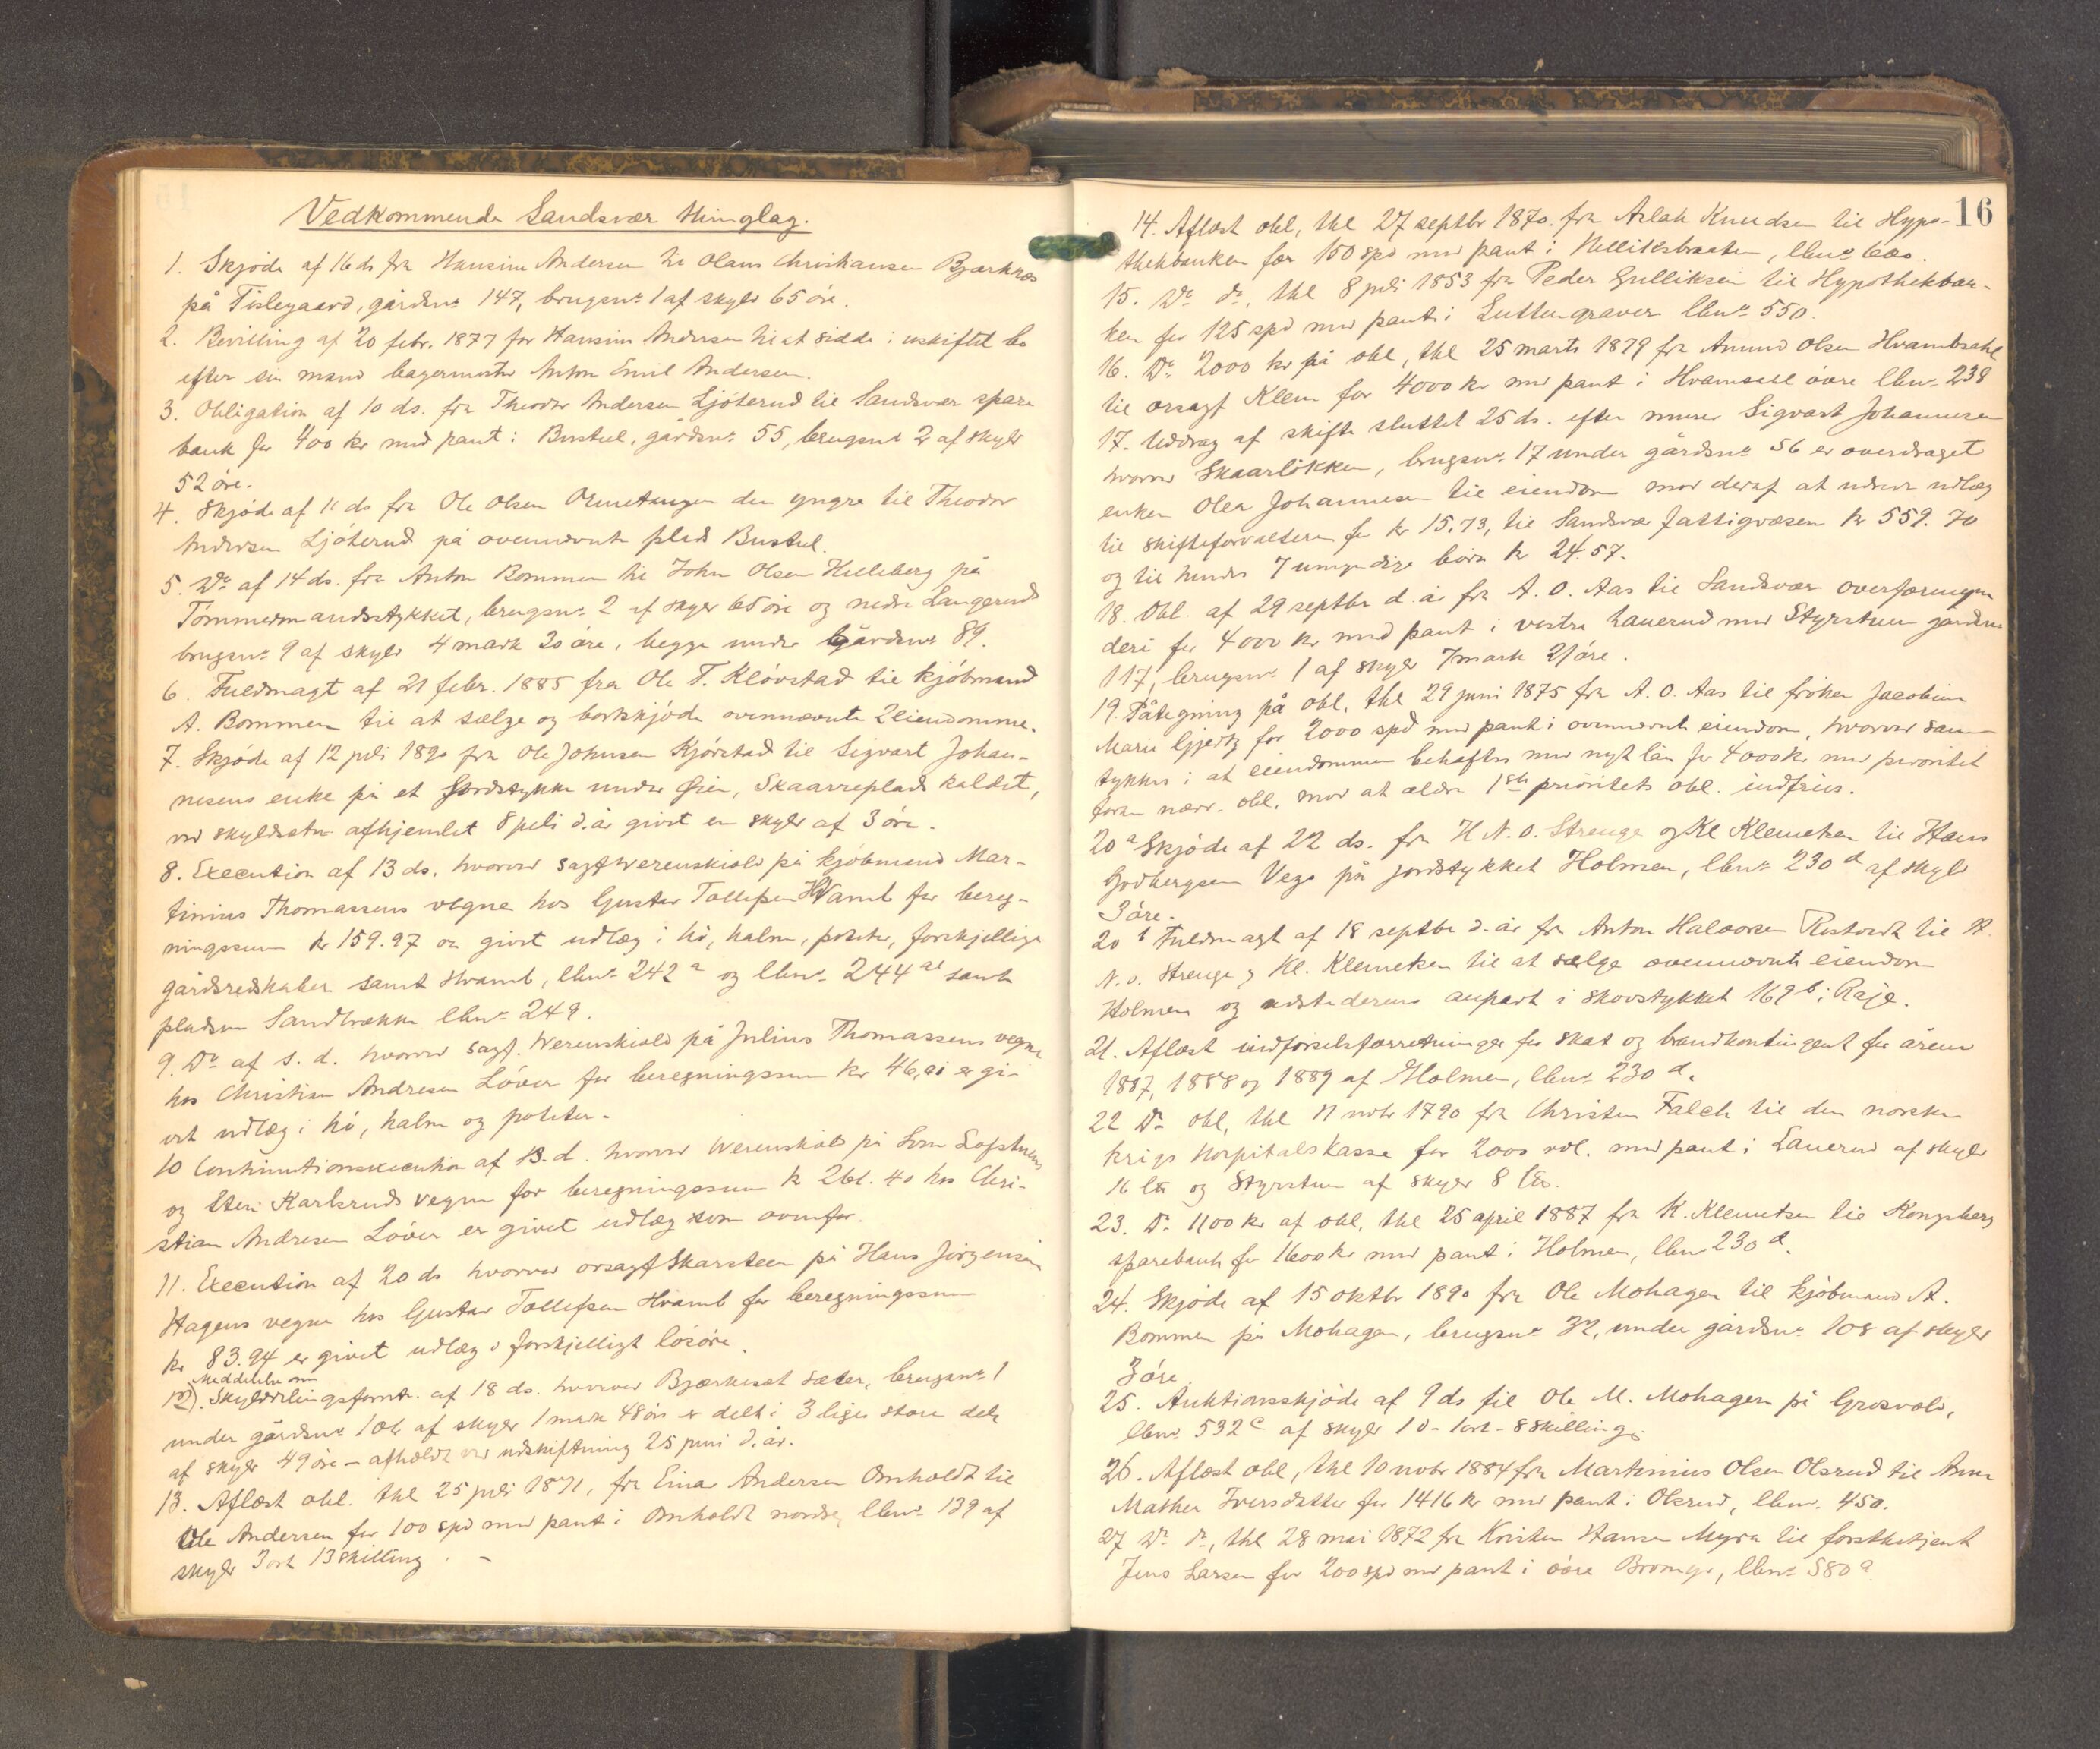 Vedkommende Sandsvær thinglag.
1. Skjøde af 16 ds fra Hansine Andersen til Olaus Christiansen Bjærknæs
på Tislegaard, gårdsno 147, brugsno 1 af skyld 65 øre.
2. Bevilling af 20 febr. 1877 for Hansine Andersen til at sidde i uskiftet bo
efter sin mand bagermester Anton Emil Andersen.
3. Obligation af 10 ds. fra Theodor Andersen Ljøterud til Sandsvær spare
bank for 400 kr med pant i Bustul, gårdsno 55, brugsno 2 af skyld
52 øre.
4. Skjøde af 11 ds fra Ole Olsen Ormetangen den yngre til Theodor
Andersen Ljøterud på ovennævnte plads Bustul.
5. Do af 14 ds. fra Anton Bommen til John Olsen Helleberg på
Tømmermandsstykket, brugsno 2 af skyld 65 øre og nedre Langerud
brugsno 9 af skyld 4 mark 20 øre, begge under gårdsno 89.
6. Fuldmagt af 21 febr. 1885 fra Ole T. Kløvstad til kjøbmand
A. Bommen til at sælge og bortskjøde ovennævnte 2 eiendomme.
7. Skjøde af 12 juli 1890 fra Ole Johnsen Kjørstad til Sigvart Johan-
nesens enke på et jordstykke under Gren, Skaarreplads kaldet,
ved skyldsætn afhjemlet 8 juli d. år givet en skyld af 3 øre.
8. Execution af 13 ds. hvorved sagf Werenskiold på kjøbmand Mar-
tinius Thomassens vegne hos Gustav Tollefsen Hvamb for bereg-
ningssum kr 159.97 er givet udlæg i hø, halm, poteter, forskjellige
gårdsredskaber samt Hvamb, lbno 242 a og lbno 244 ae samt
pladsen Sandbrække lbno 249.
9. Do af s. d. hvorved sagf. Werenskiold på Julius Thomassens vegne
hos Christian Andresen Løver for beregningssum kr 46, er gi-
vet udlæg i hø, halm og poteter.
10 Continuationsexecution af 13. d. hvorved Werenskiold på Lofsthuus
og Sten Karlsruds vegne for beregningssum kr 261.40 hos Chri-
stian Andresen Løver er givet udlæg som ovenfor.
11. Execution af 20 ds hvorved orsagf Skarsteen på Hans Jørgensen
Hagens vegne hos Gustav Tollefsen Hvamb for beregningssum
kr 83.94 er givet udlæg i forskjelligt løsøre.
Meddelelse om
12). Skylddelingsforretn. af 18 ds. hvorved Bjærkeset sæter, brugsno 1
under gårdsno 106 af skyld 1 mark 48 øre er delt i 3 lige store dele
af skyld 49 øre – afholdt ved udskiftning 25 juni d. år.
13. Aflæst obl. thl 25 juli 1871, fra Einar Andersen Omholdt til
Ole Andersen for 100 spd med pant i Omholdt nordre, lbno 139 af
skyld 3 ort 13 skilling. –
16
14. Aflæst obl, thl 27 septbr 1870. fra Aslak Knudsen til Hypo-
thekbanken for 150 spd med pant i Nellikbraaten, lbno
15. Do do, thl 8 juli 1853 fra Peder Gulliksen til Hypothekban-
ken for 125 spd med pant i Luttengraven lbno 550.
16. Do 2000 kr på obl, thl 25 marts 1879 fra Amund Olsen Hvambsahl
til orsagf Klem for 4000 kr med pant i Hvamsahl øvre lbno 238
17. Uddrag af skifte sluttet 25 ds. efter murer Sigvart Johannesen
hvorved Skaarløkken, brugsno 17 under gårdsno 56 er overdraget
enken Olea Johannesen til eiendom mod deraf at udrede udlæg
til skifteforvalteren for kr 15.73, til Sandsvær fattigvæsen kr 559.70
og til hendes 7 umyndige børn kr 24.57.
18. Obl. af 29 septbr d. år fra A. O. Aas til Sandsvær overformyn
deri for 4000 kr med pant i vestre Lauerud med Styrstuen gårdsno
117, brugsno 1 af skyld 7 mark 21 øre.
19. Påtegning på obl, thl 29 juni 1875 fra A. O. Aas til frøken Jacobine
Marie Gjertz for 2000 spd med pant i ovennævnte eiendom, hvorved sam-
tykkes i at eiendommen behæftes med nyt lån for 4000 kr med prioritet
foran nævn. obl. mod at ældre 1ste prioritets obl. indfries.
20 a Skjøde af 22 ds. fra H N. O. Strenge og Kl Klemetsen til Hans
Godbergsen Vego på jordstykket Holmen, lbno 230 d af skyld
3 øre.
20 b Fuldmagt af 18 septbr d. år fra Anton Halvorsen til H.
N. O. Strenge og Kl. Klemetsen til at sælge ovennævnte eiendom
Holmen og udstederens anpart i skovstykket 169 b i Raje.
21. Aflæst indførselsforretninger for skat og brandkontingent for årene
1887, 1888 og 1889 af Holmen, lbno 230 d.
22 Do obl, thl 11 novbr 1790 fra Christen Falch til den norske
krigs hospitalskasse for 2000 rdl. med pant i Lauerud af skyld
16 l℔ og Styrstuen af skyld 8 l℔.
23. Do 1100 kr af obl, thl 25 april 1887 fra K. Klemetsen til Kongsberg
sparebank for 1600 kr med pant i Holmen, lbno 230 d.
24. Skjøde af 15 oktbr 1890 fra Ole Mohagen til kjøbmand A.
Bommen på Mohagen, brugsno 32, under gårdsno 108 af skyld
3 øre.
25. Auktionsskjøde af 9 ds til Ole M. Mohagen på Grosvold,
lbno 532 c af skyld 1 d – 1 ort – 8 skilling.
26. Aflæst obl, thl 10 novbr 1884 fra Martinius Olsen Olsrud til Anne
Mathea Iversdatter for 1416 kr med pant i Olsrud, lbno 450.
27 Do do, thl 28 mai 1872 fra Kristen Hansen Myra til forstbetjent
Jens Larsen for 200 spd med pant i øvre Bromge, lbno 580 a